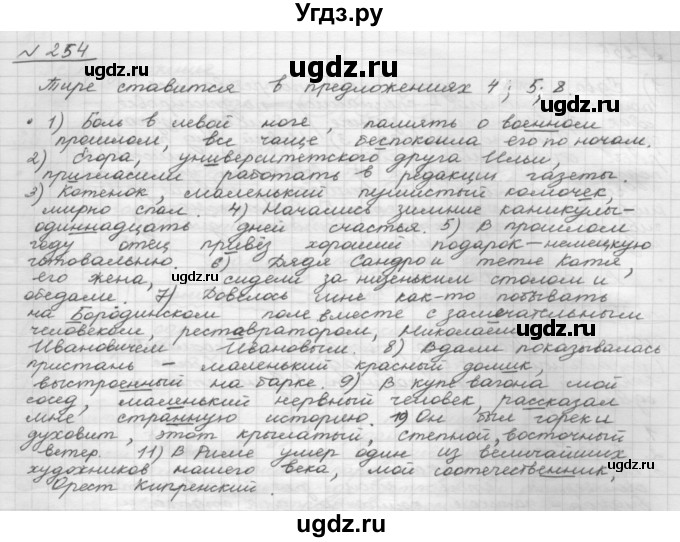 Угдз.ру
№ 254
Тире ставится в предложениях 4; 5; 8.
• 1) Боль в левой ноге, память о военном
прошлом, все чаще беспокоила его по ночам.
2) Егора, университетского друга Ильи,
пригласили работать в редакции газеты.
3) Котенок, маленький пушистый комочек,
мирно спал. 4) Начались зимние каникулы-
одиннадцать дней счастья. 5) В прошлом
году отец привёз хороший подарок - немецкую
готовальню. 6) Дядя Сандро и тетя Катя,
его жена, сидели за низеньким столом и
обедали. 7) Довелось мне как-то побывать
на Бородинском поле вместе с замечательным
человеком, реставратором, Николаем
Ивановичем Ивановым. 8) Вдали показывалась
пристань - маленький красный домик,
выстроенный на барке. 9) В купе вагона мой
сосед, маленький нервный человек, рассказал
мне странную историю. 10) Он был горек и
духовит, этот крылатый, степной, восточный
ветер. 11) В Риме умер один из величайших
художников нашего века, мой соотечественник,
Орест Кипренский.
ugdz.ru
ugdz.ru
ugdz.ru
ugdz.ru
ugdz.ru
ugdz.ru
ugdz.ru
ugdz.ru
ugdz.ru
ugdz.ru
ugdz.ru